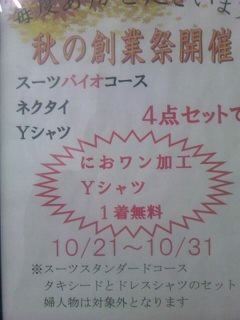 秋の創業祭開催
スーツバイオコース
ネクタイ
Yシャツ
4点セットで
におワン加工
Yシャツ
1着無料
10/21～10/31
※スーツスタンダードコース
タキシードとドレスシャツのセット
婦人物は対象外となります